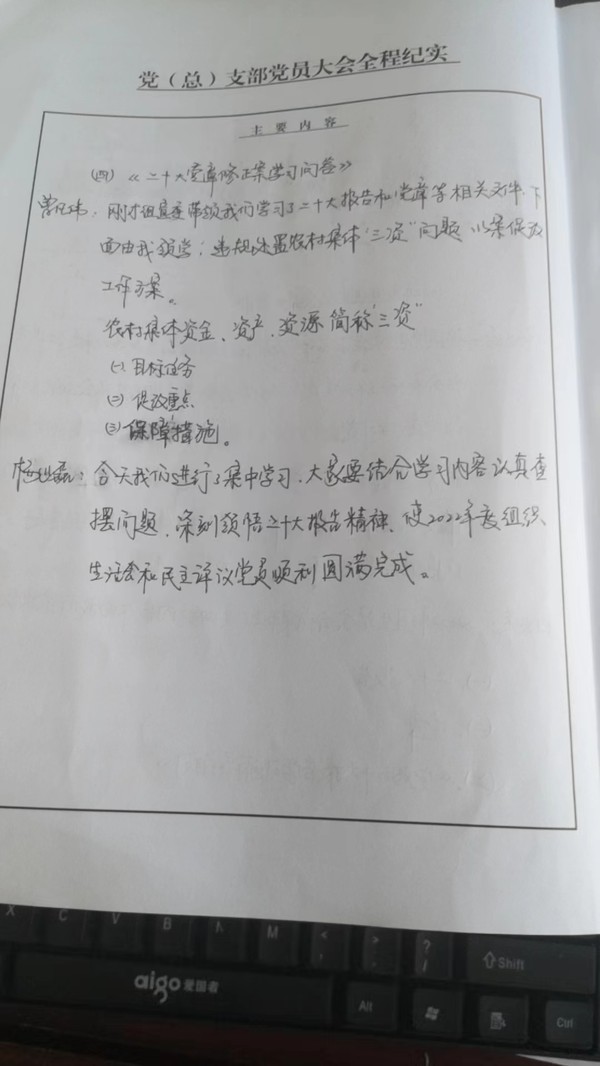 党（总）支部党员大会全程纪实
主要内容
(四)《二十大党章修正案学习问答》
刚才 带领我们学习了二十大报告和党章等相关文件，下
面由我领学：违规处置农村集体“三资”问题 以案促改
工作方案。
农村集体资金、资产、资源 简称“三资”
(一) 目标任务
(二) 促改重点
(三) 保障措施。
今天我们进行了集中学习，大家要结合学习内容认真查
摆问题，深刻领悟二十大报告精神，使2022年度组织
生活会和民主评议党员顺利圆满完成。
X C V B N M < , > . ? / ⇧Shift
aigo爱国者 Alt Ctrl